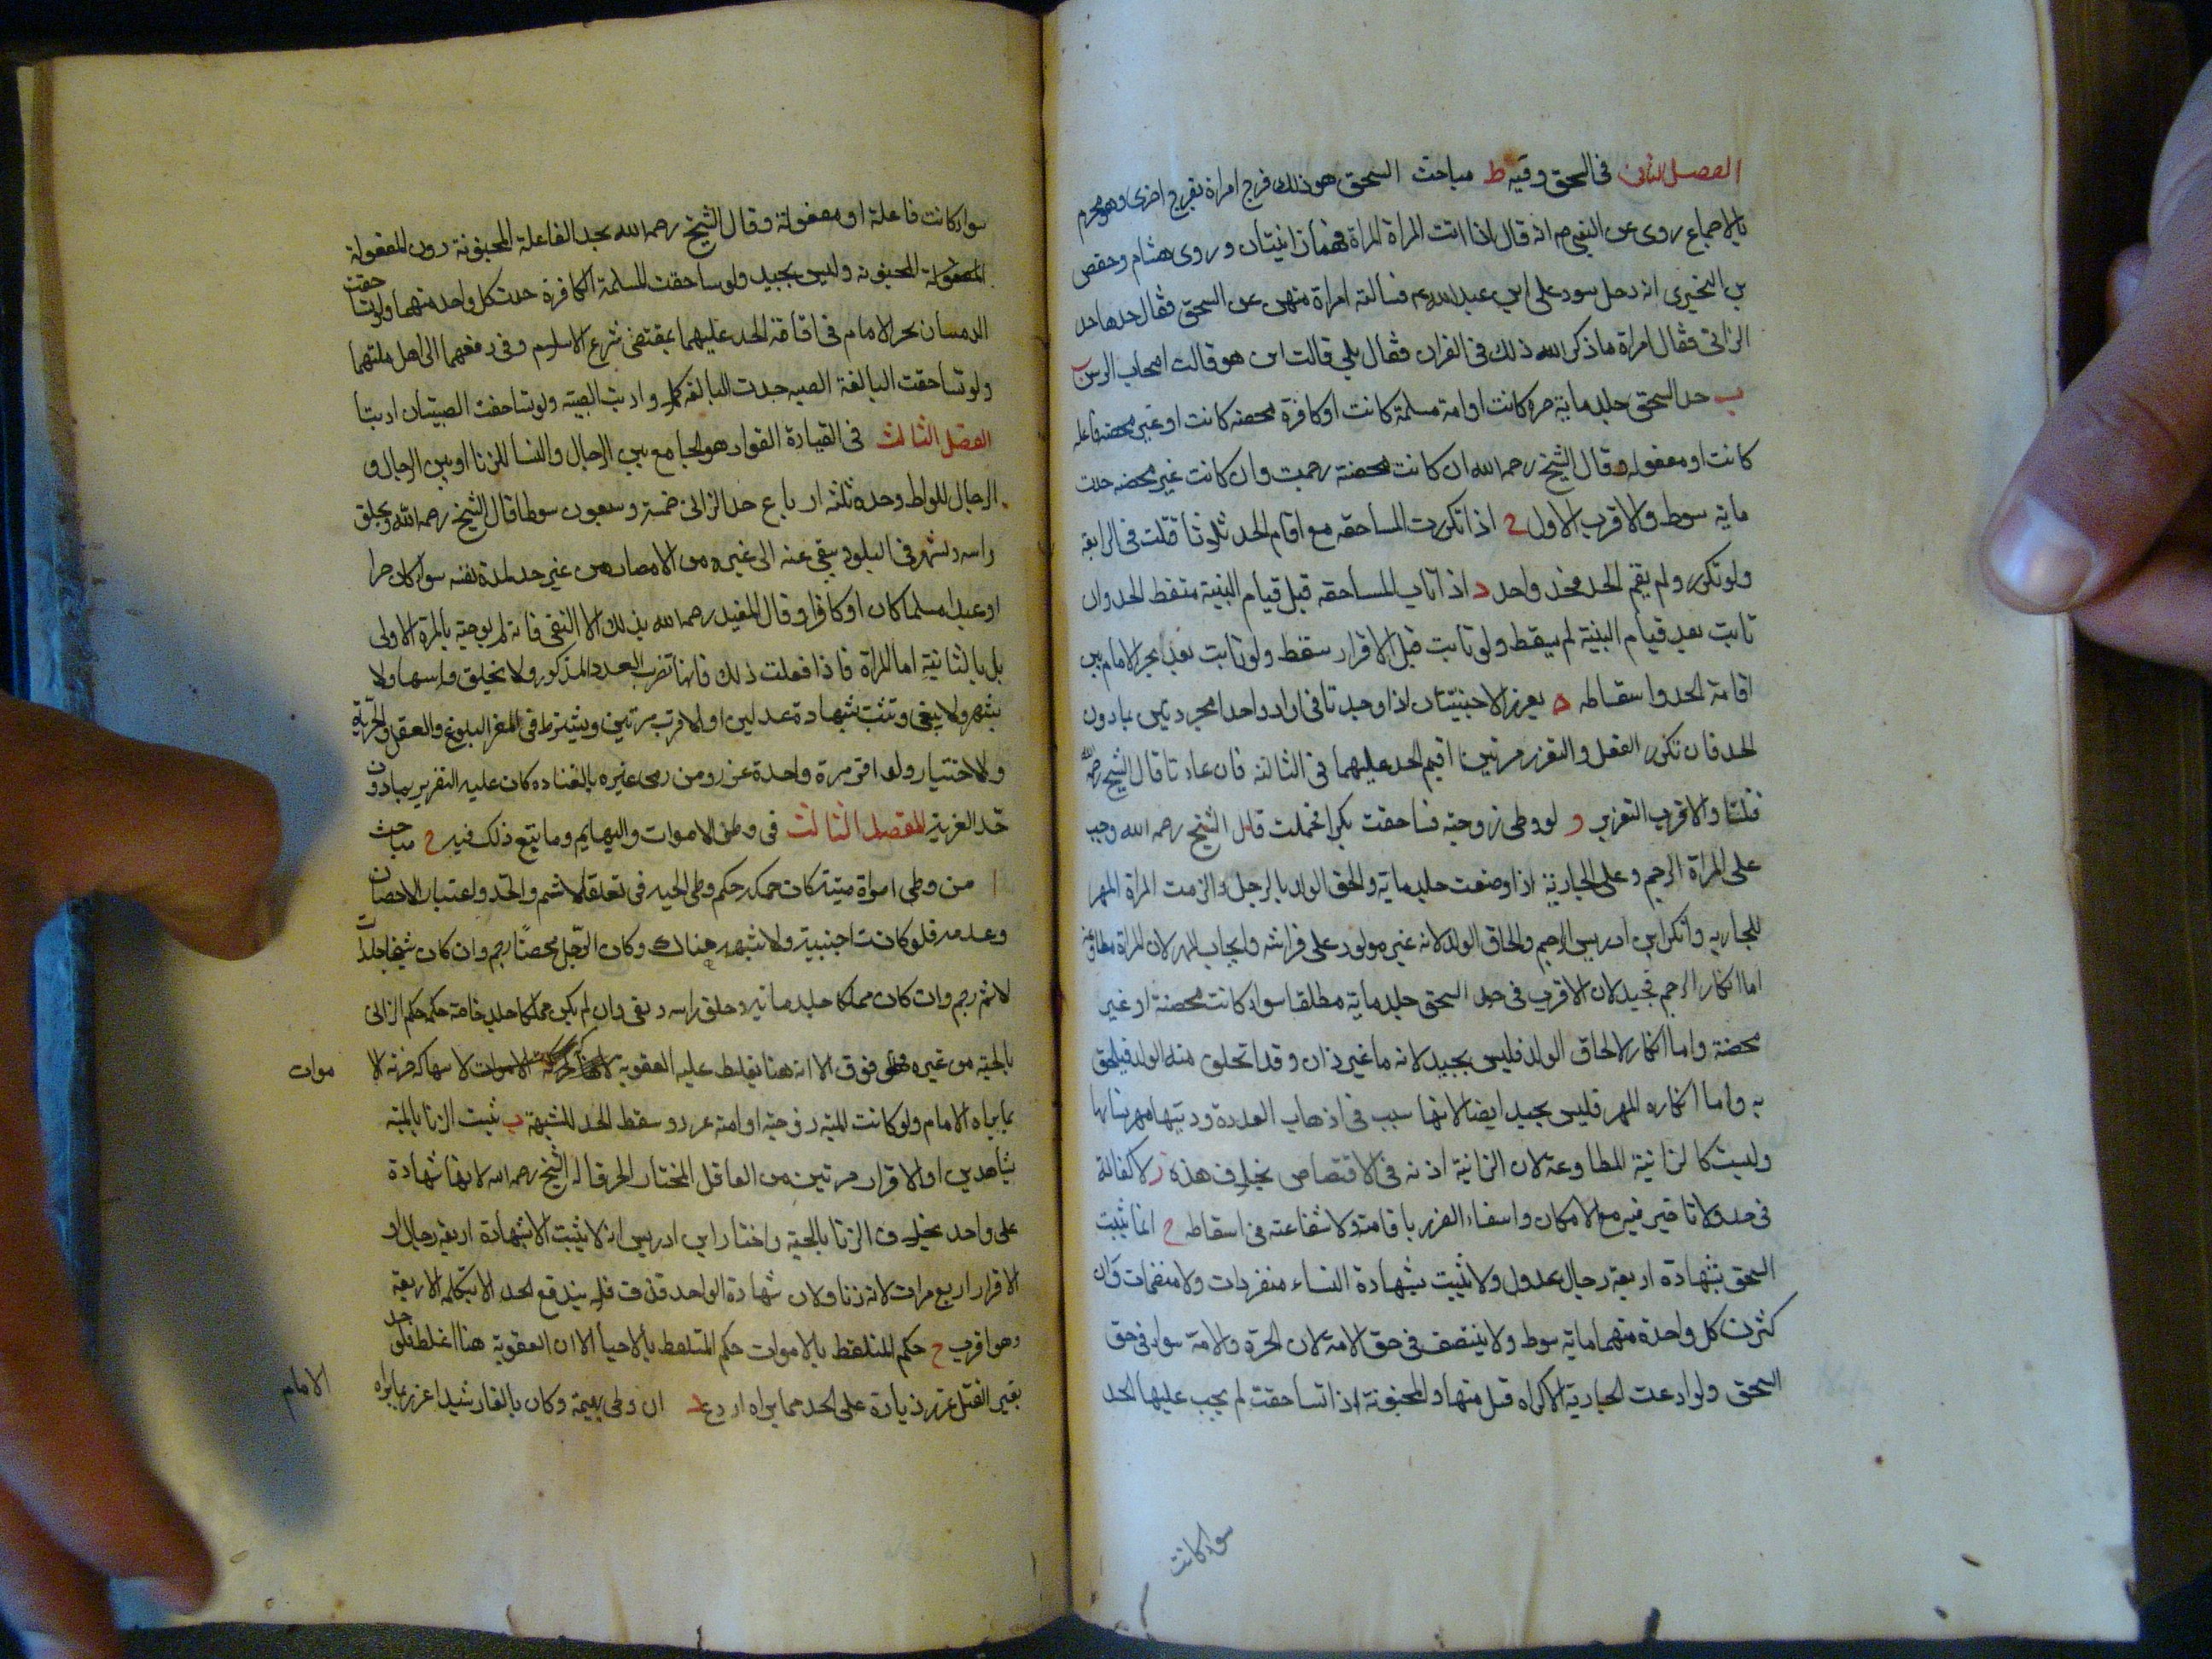 الفصل الثانى فى السحق وفيه ط مباحث السحق هو ذلك فرج امراة بفرج اخرى وهو محرم
بالاجماع روى عن النبى ص انه قال اذا اتت المراة المراة فهما زانيتان وروى هشام وحفص
بن البخترى انه دخل نسوة على ابى عبد الله ع فسالته امراة منهن عن السحق فقال حدها حد
الزانى فقال امراة ماذكر الله ذلك فى القران فقال بلى قالت اين هو قالت اصحاب الرس
ب حد السحق جلد ماية حرة كانت او امة مسلمة كانت او كافرة محصنه كانت او غير محصنه فاعله
كانت او مفعوله وقال الشيخ رحمه الله ان كانت محصنة رجمت وان كانت غير محصنه حدت
ماية سوط والاقرب الاول ح اذا تكررت المساحقه مع اقام الحد ثلوثا قتلت فى الرابعه
ولو تكرر ولم يقم الحد فحد واحد د اذا تابت المساحقه قبل قيام البنية سقط الحد وان
تابت بعد قيام البنية لم يسقط ولو تابت قبل الاقرار سقط ولو تابت بعد يخير الامام بين
اقامة الحد واسقاطه ه يعزر الاجنبيتان اذا وجدتا فى ازار واحد مجردتين بما دون
الحد فان تكرر الفعل والتعزر مرتين اقيم الحد عليهما فى الثالثه فان عادتا قال الشيخ رحمه الله
قتلتا والاقرب التعزير و لو وطى زوجته فساحقت بكرا فحملت قال الشيخ رحمه الله وجب
على المراة الرجم وعلى الجارية اذا وضعت جلد ماية والحق الولد بالرجل والزمت المراة المهر
للجاريه وانكر ابن ادريس الرجم والحاق الولد لانه غير مولود على فراشه وايجاب المهر لان المراة مطاوعة
اما انكار الرجم فجيد لان الاقرب فى حد السحق جلد ماية مطلقا سواء كانت محصنة او غير
محصنة واما انكار الالحاق الولد فليس بجيد لانه ماء غير زان وقد انخلق منه الولد فيلحق
به واما انكاره المهر فليس بجيد ايضا لانها سبب فى اذهاب العذرة ودينها مهر نسائها
وليست كالزانية المطاوعة لان الزانية اذنه فى الاقتصاص بخلاف هذه ز لا كفالة
فى حد ولا تاخير فيه مع الامكان وانتفاء الضرر باقامته ولا شفاعته فى اسقاطه ح انما يثبت
السحق بشهادة اربعة رجال عدول ولا يثبت بشهادة النساء منفردات ولا منضمات وان
كثرن كل واحدة منهما ماية سوط ولا ينتصف فى حق الامة لان الحرة والامة سواء فى حق
السحق ولو ادعت الجارية الاكراه قبل منها والمجنونة اذا تساحقت لم يجب عليها الحد
سواء كانت
سواء كانت فاعلة او مفعولة وقال الشيخ رحمه الله يحد الفاعلة المجنونة دون المفعولة
المفعولة المجنونه وليس بجيد ولو ساحقت المسلمة الكافرة حدت كل واحد منهما ولو تساحقت
الذميتان يخير الامام فى اقامة الحد عليهما بمقتضى شرع الاسلام وفى دفعهما الى اهل ملتهما
ولو تساحقت البالغة الصبيه حدت البالغه كملا وادبت الصبيه ولو تساحقت الصبيتان ادبتا
الفصل الثالث فى القيادة القواد هو الجامع بين الرجال والنسا للزنا او بين الرجال و
الرجال للواط وحده ثلثه ارباع حد الزانى خمسة وسبعون سوطا قال الشيخ رحمه الله ويحلق
راسه ويشهر فى البلد وينفى عنه الى غيره من الامصار من غير حد لمدة نفيه سواء كان حرا
او عبدا مسلما كان او كافرا وقال المفيد رحمه الله بذلك الا النفى فانه لم يوجبه بالمرة الاولى
بل بالثانية اما المراة فاذا فعلت ذلك فانها تضرب العدد المذكور ولا يحلق راسها ولا
يشهر ولا ينفى وتثبت بشهادة عدلين او الاقرب مرتين ويشترط فى المقر البلوغ والعقل والحرية
والاختيار ولو اقر مرة واحدة عزر ومن رمى غيره بالقياده كان عليه التعزير بما دون
حد العزير المقصد الثالث فى وطى الاموات والبهايم وما يتبع ذلك فيه ح مباحث
ا من وطى امراة ميتة كان حكمه حكم وطى الحيه فى تعلق الاثم والحد واعتبار الاحصان
وعدمه فلو كانت اجنبية ولا شبهه هناك وكان الرجل محصنا رجم وان كان شيخا جلد
لا ثم رجم وان كان مملكا جلد مائه وحلق راسه ونفى وان لم يكن مملكا جلد خاصة حكمه حكم الزانى
بالحية من غيره فرق الا انه هنا يغلظ عليه العقوبه الاموات لانتهاكه حرمة الا
موات
بما يراه الامام ولو كانت الميته زوجته او امته عزر وسقط الحد للشبهة ب يثبت الزنا بالميته
بشاهدين او الاقرار مرتين من العاقل المختار الحر قاله الشيخ رحمه الله لانها شهادة
على واحد بخلاف الزنا بالحية واختار ابن ادريس انه لا يثبت الا بشهادة اربعة رجال او
الاقرار اربع مرات لانه زنا ولان شهادة الواحد قذف فلم يندفع الحد الا بتكملة الاربعة
وهو اقرب ح حكم المتلوط بالاموات حكم المتلوط بالاحيا الا ان العقوبة هنا اغلظ فلو حد
بغير القتل عزر زيادة على الحد مما يراه اردع ط ان وطى بهيمة وكان بالغا رشيدا عزر بما يراه
الامام